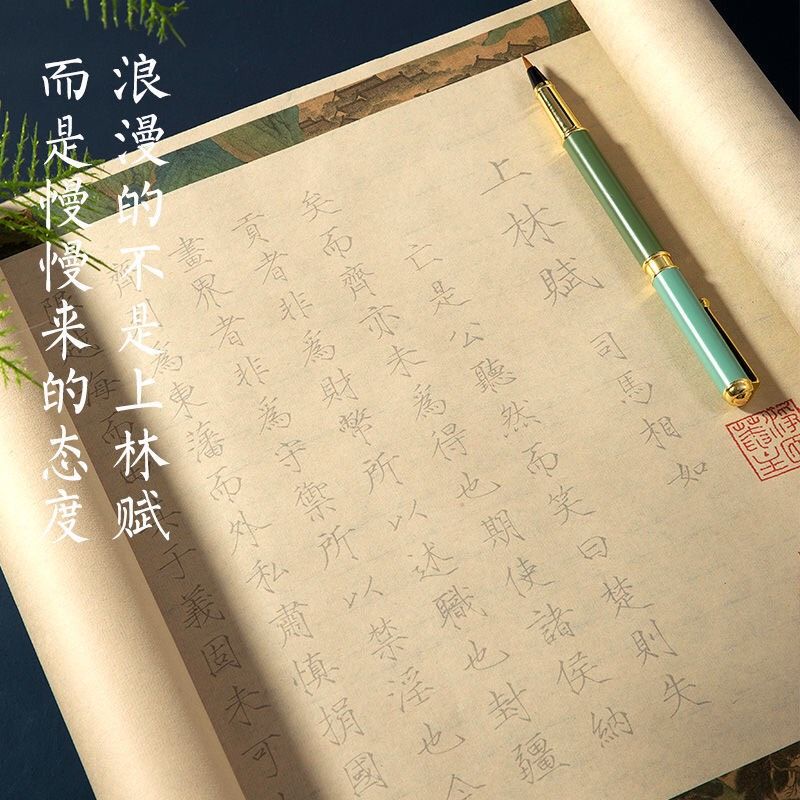 浪漫的不是上林赋
而是慢慢来的态度
上林賦
司馬相如
亡是公聽然而笑曰楚則失
矣而齊亦未為得也期使諸侯納
貢者非為財幣所以述職也封疆
畫界者非為守禦所以禁淫也今
齊為東藩而外私肅慎捐國
越海而于義固未可